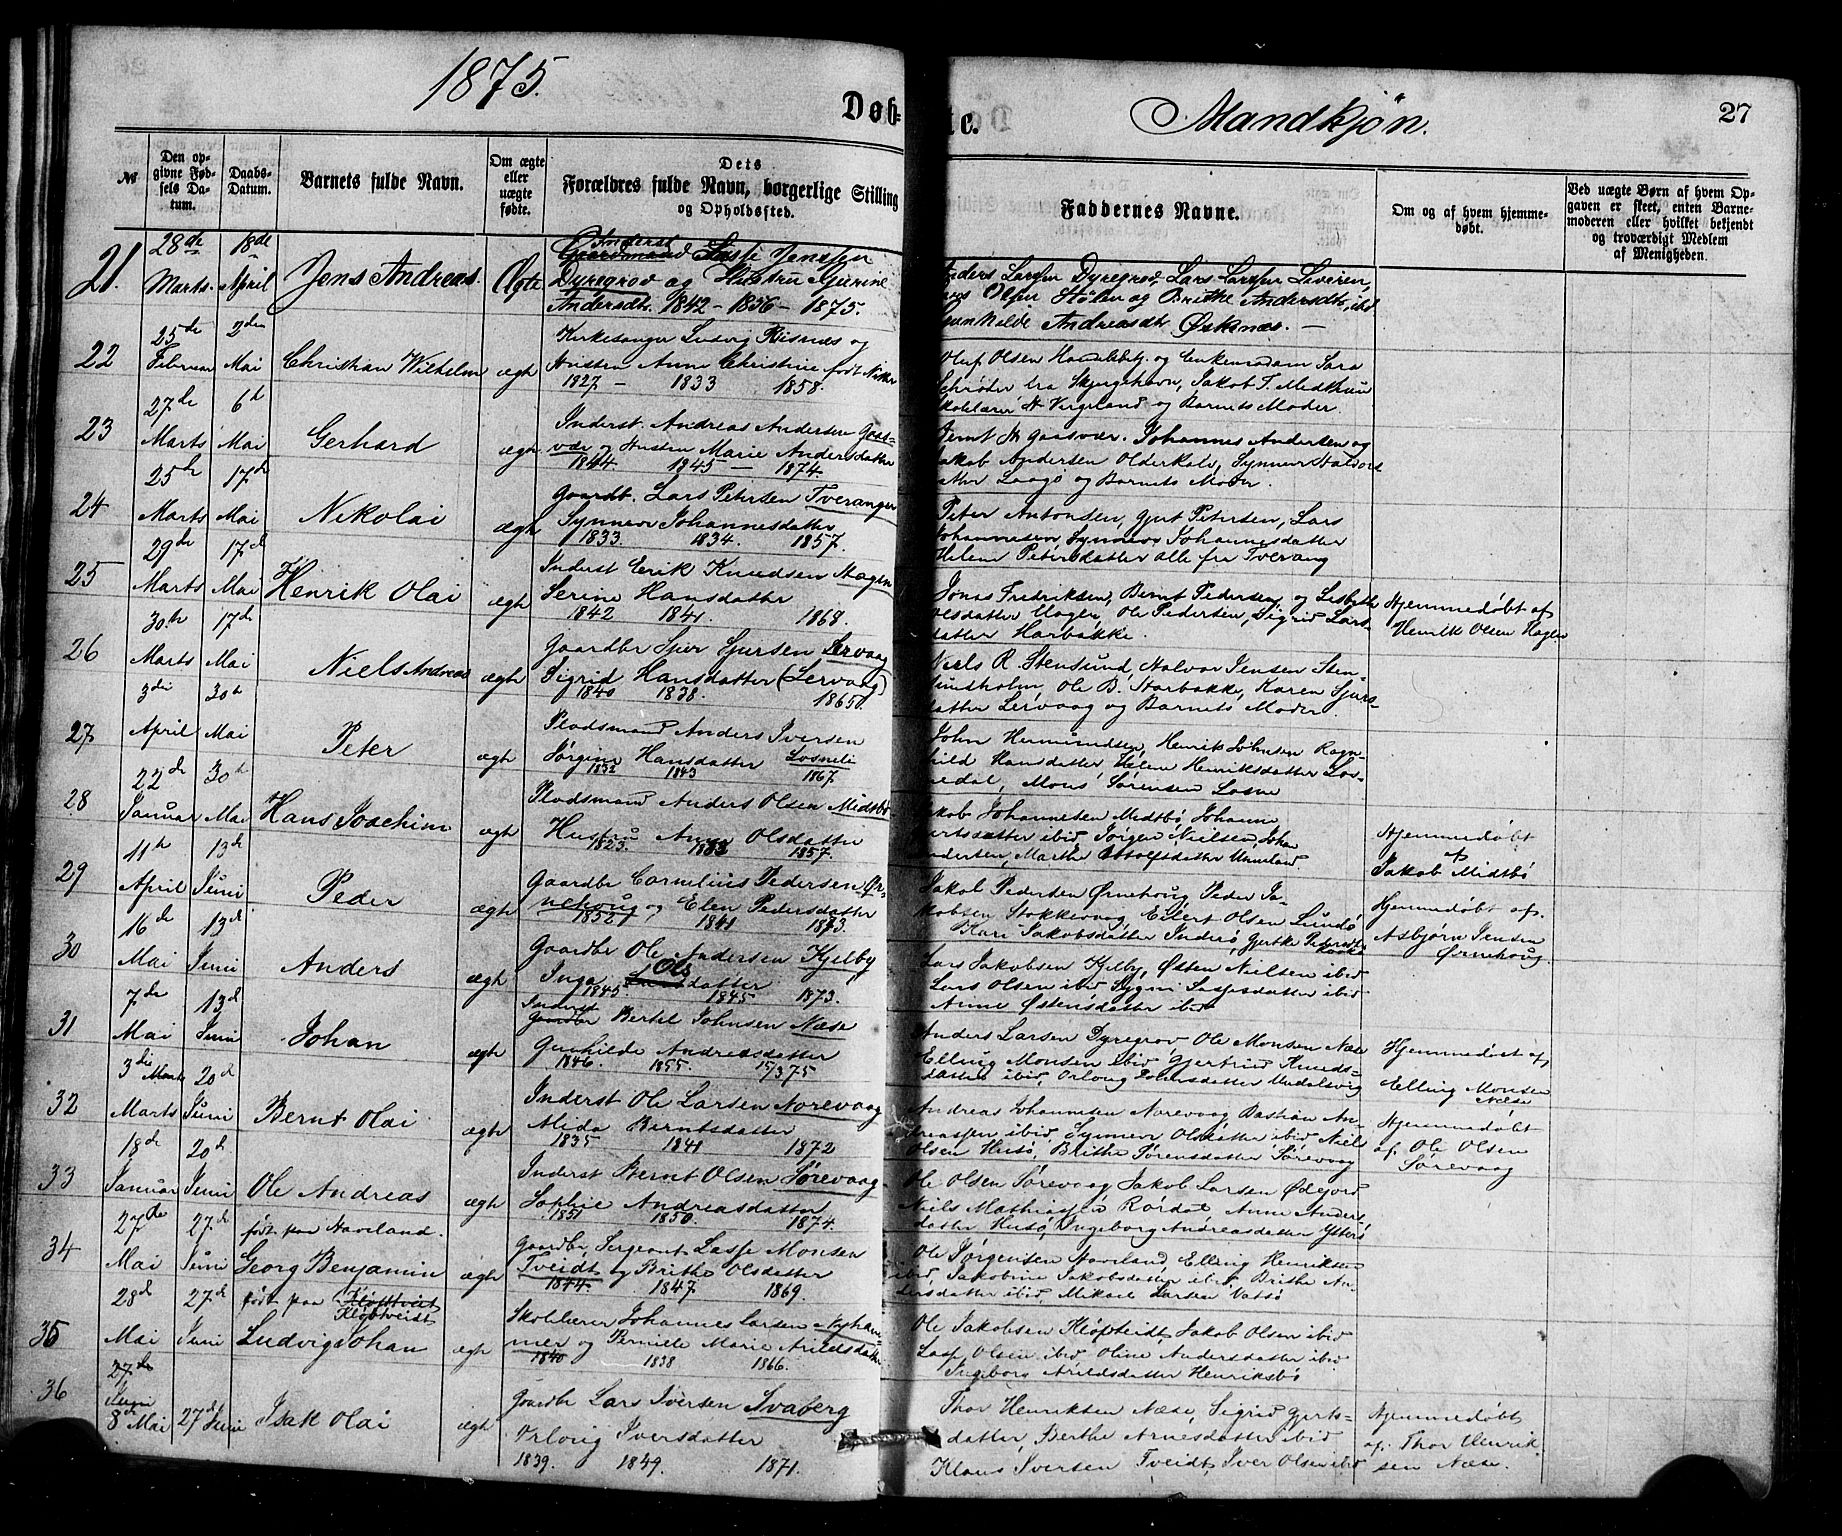 1875.
Døb=
te.
Mandkjøn.
27
№
Den op-
givne Fød-
sels Da-
tum.
Daabs-
Datum.
Barnets fulde Navn.
Om ægte
eller
uægte
fødte.
Dets
Forældres fulde Navn, borgerlige Stilling
og Opholdssted.
Faddernes Navne.
Om og af hvem hjemme-
døbt.
Ved uægte Børn af hvem Op-
gaven er skeet, enten Barne-
moderen eller hvilket bekjendt
og troværdigt Medlem
af Menigheden.
21.
28de
Marts.
18de
April
Jens Andreas.
Ægte
Inderst
Gaardmand Lasse Jenssen
Dyregrov og Hustru Gjurine
Andersdt. 1842 - 1856 - 1875.
Anders Larssen Dyregrov, Lars Larssen Leveren,
Olsen Hølen og Brithe Andersdtr, ibd
Gunhilde Andreasdtr Øksnæs. —
22
25de
Februar
2den
Mai
Christian Wilhelm
ægte
Kirkesanger Ludvig Risnæs og
Hustru Anne Christine født
1827 — 1833 1858.
Oluf Olsen Handelsbetj. og Enkemadam Sara
Schrøder fra Skjergehavn, Jakob T. Midthun
Skolelærer N. Vergeland og Barnets Moder.
23
27de
Marts
6te
Mai
Gerhard
ægte
Inderst. Andreas Andersen Gaas-
vær og Hustru Marie Andersdatter
1844 1845 — 1874.
Bernt N Gaasvær. Johannes Andersen og
Jakob Andersen Olderkalv, Synneve Halvors
datter Laagø og Barnets Moder.
24
25de
Marts
17de
Mai
Nikolai
ægte
Gaardb. Lars Petersen Tveranger
Synneve Johannesdatter
1833. 1834. 1857.
Peter Antonsen, Gjert Petersen, Lars
Johannesen Synneve Johannesdatter
Helene Petersdatter alle fra Tverang
25
29de
Marts
17de
Mai
Henrik Olai
ægte
Inderst Erik Knudsen Hagen
Serine Hansdatter
1842 1841 1868.
Jonas Fredriksen, Bernt Pedersen og Lisbethe
Olsdatter Hagen, Ole Pedersen, Sigrid Lars-
datter Harbakke.
Hjemmedøbt af
Henrik Olsen Hagen
26
30te
Marts
17de
Mai
Niels Andreas
ægte
Gaardbr Sjur Sjursen Lervaag
Sigrid Hansdatter (Lervaag)
1840 1838. 1865
Niels R. Stensund, Halvor Jensen Sten-
sundholm, Ole B. Harbakke, Karen Sjurs-
datter Lervaag og Barnets Moder
27
3die
April
30te
Mai
Peter
ægte
Pladsmand Anders Iversen
Jørgine Hansdatter Losneli
1832 1843 1867.
John Hermundsen, Henrik Johnsen Ragn-
hild Hansdatter, Helene Henriksdatter Los-
nedal, Mons Sørensen Losne
28
22de
Januar
30te
Mai
Hans Joachim
ægte
Pladsmand Anders Olsen Midtbø
Hustru Anne Olsdatter
1823. 1857.
Jakob Johannesen Midtbø Johanne
Gjertsdatter ibid, Jørgen Nielsen, Johan
Andersen, Marthe
Hjemmedøbt
af
Jakob Midtbø
29
11te
April
13de
Juni
Peder
ægte
Gaardbr Cornelius Pedersen Ør-
nehoug og Elen Pedersdatter
1852 1841 1873.
Jakob Pedersen Ørnehoug Peder Ja-
kobsen Stokkevaag, Eilert Olsen Lundø
Kari Jakobsdatter Inderø, Gjertke Pedersdtr
Hjemmedøbt af.
Asbjørn Jensen
Ørnehoug.
30
16de
Mai
13de
Juni
Anders
ægte
Gaardbr Ole Andersen Kjelby
Inga Olsdatter
1845. 1845 1873.
Lars Jakobsen Kjelby, Østen Nielsen ibid
Lars Olsen ibid Lassesdatter ibid
Anne Østensdatter ibid
31
7de
Mai
13de
Juni
Johan
ægte
Inderst
Gaardbr Bertel Johnsen Næse
Gunhilde Andreasdatter
1846. 1855. 15/3 75
Anders Larsen Dyregrov Ole Monsen Næse
Elling Monsen ibid, Gjertrud Knuds-
datter ibid, Orloug Johnsdatter Undalsvig
Hjemmedøbt af
Elling Monsen
Næse
32
3die Marts
Marts
20de
Juni
Bernt Olai
ægte
Inderst Ole Larsen Norevaag
Alida Berntsdatter
1835 1841 1872
Andreas Johannesen Norevaag Bastian An-
dreassen ibid, Synneve Olsdatter ibid Niels
Olsen Husø, Brithe Sørensdatter Sørevaag
Hjemmedøbt
af Ole Olsen
Sørevaag
33
18de
Januar
20de
Juni
Ole Andreas
ægte
Inderst Bernt Olsen Sørevaag
Sophie Andreasdatter
1851 1850. 1874.
Ole Olsen Sørevaag Jakob Larsen Ødejord
Niels Mathiassen Rørdal Anne Anders
datter Husø, Ingeborg Andreasdatter Ytterø
34
27de
Mai
27de
Juni
født paa Haveland.
Georg Benjamin
ægte
Gaardbr, Sergeant Lasse Monsen
Tveidt og Brithe Olsdatter
1844. 1847 1869.
Ole Jørgensen Haveland, Elling Henriksen
ibid, Jakobine Jakobsdatter ibid, Brithe An-
dersdatter ibid, Mikael Larsen Vatsø
35
28de
Mai
27de
Juni
født paa
Kløvtveidt
Ludvig Johan
ægte
Skolelærer Johannes Larsen Nyham-
mer og Pernille Marie Arildsdatter
1840 1838 1866.
Ole Jakobsen Kløfteidt, Jakob Olsen ibid
Lasse Olsen ibid Oline Andersdatter ibid
Ingeborg Arildsdatter Henriksbø
36
27de
Juni
8de Mai
27de Juni
Isak Olai
ægte
Gaardbr Lars Iversen Svaberg
Orloug Iversdatter
1839. 1849. 1871.
Thor Henriksen Næse, Sigrid Gjerts-
datter, Berthe Arnesdatter ibid
Klaus Iversen Tveidt, Iver Olsen ibid
Hjemmedøbt
af Thor Henrik-
sen Næse.